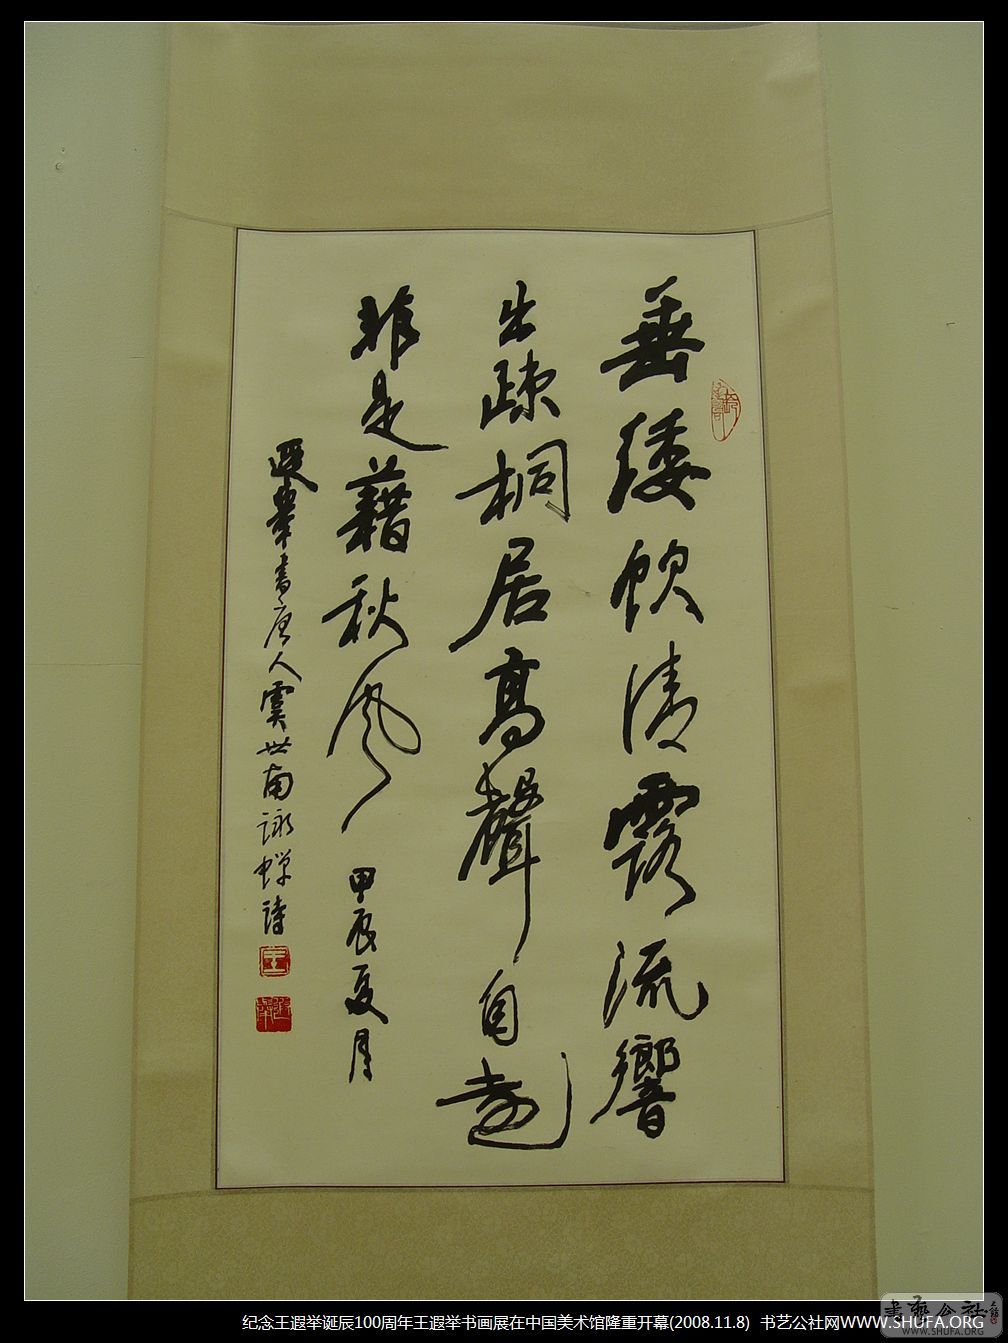 垂緌飲清露流響
出疎桐居高聲自遠
非是藉秋風 甲辰夏月
遐舉書唐人虞世南詠蟬詩
纪念王遐举诞辰100周年王遐举书画展在中国美术馆隆重开幕(2008.11.8) 书艺公社网WWW.SHUFA.ORG
書藝公社
WWW.SHUFA.ORG